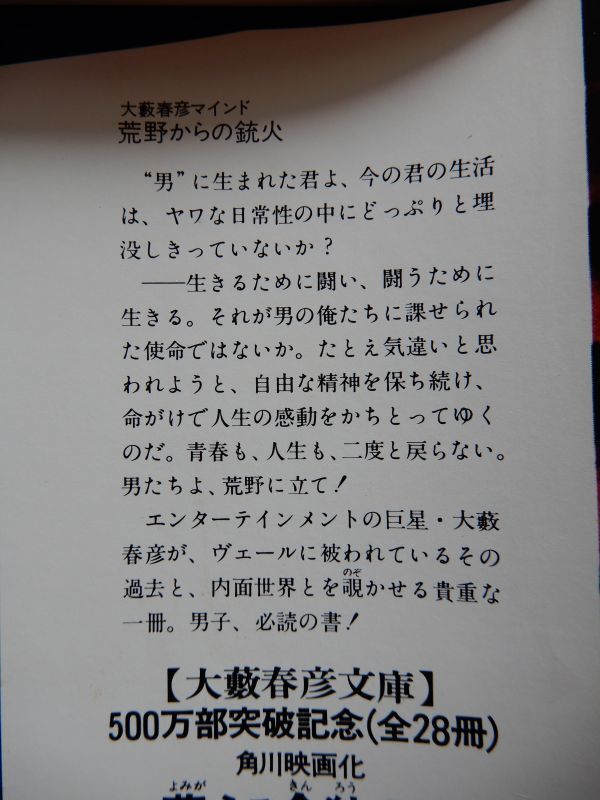 大藪春彦マインド
荒野からの銃火
“男”に生まれた君よ、今の君の生活
は、ヤワな日常性の中にどっぷりと埋
没しきっていないか？
――生きるために闘い、闘うために
生きる。それが男の俺たちに課せられ
た使命ではないか。たとえ気違いと思
われようと、自由な精神を保ち続け、
命がけで人生の感動をかちとってゆく
のだ。青春も、人生も、二度と戻らない。
男たちよ、荒野に立て！
エンターテインメントの巨星・大藪
春彦が、ヴェールに被われているその
過去と、内面世界とを覗かせる貴重な
のぞ
一冊。男子、必読の書！
【大藪春彦文庫】
500万部突破記念(全28冊)
角川映画化
よみが きん ろう